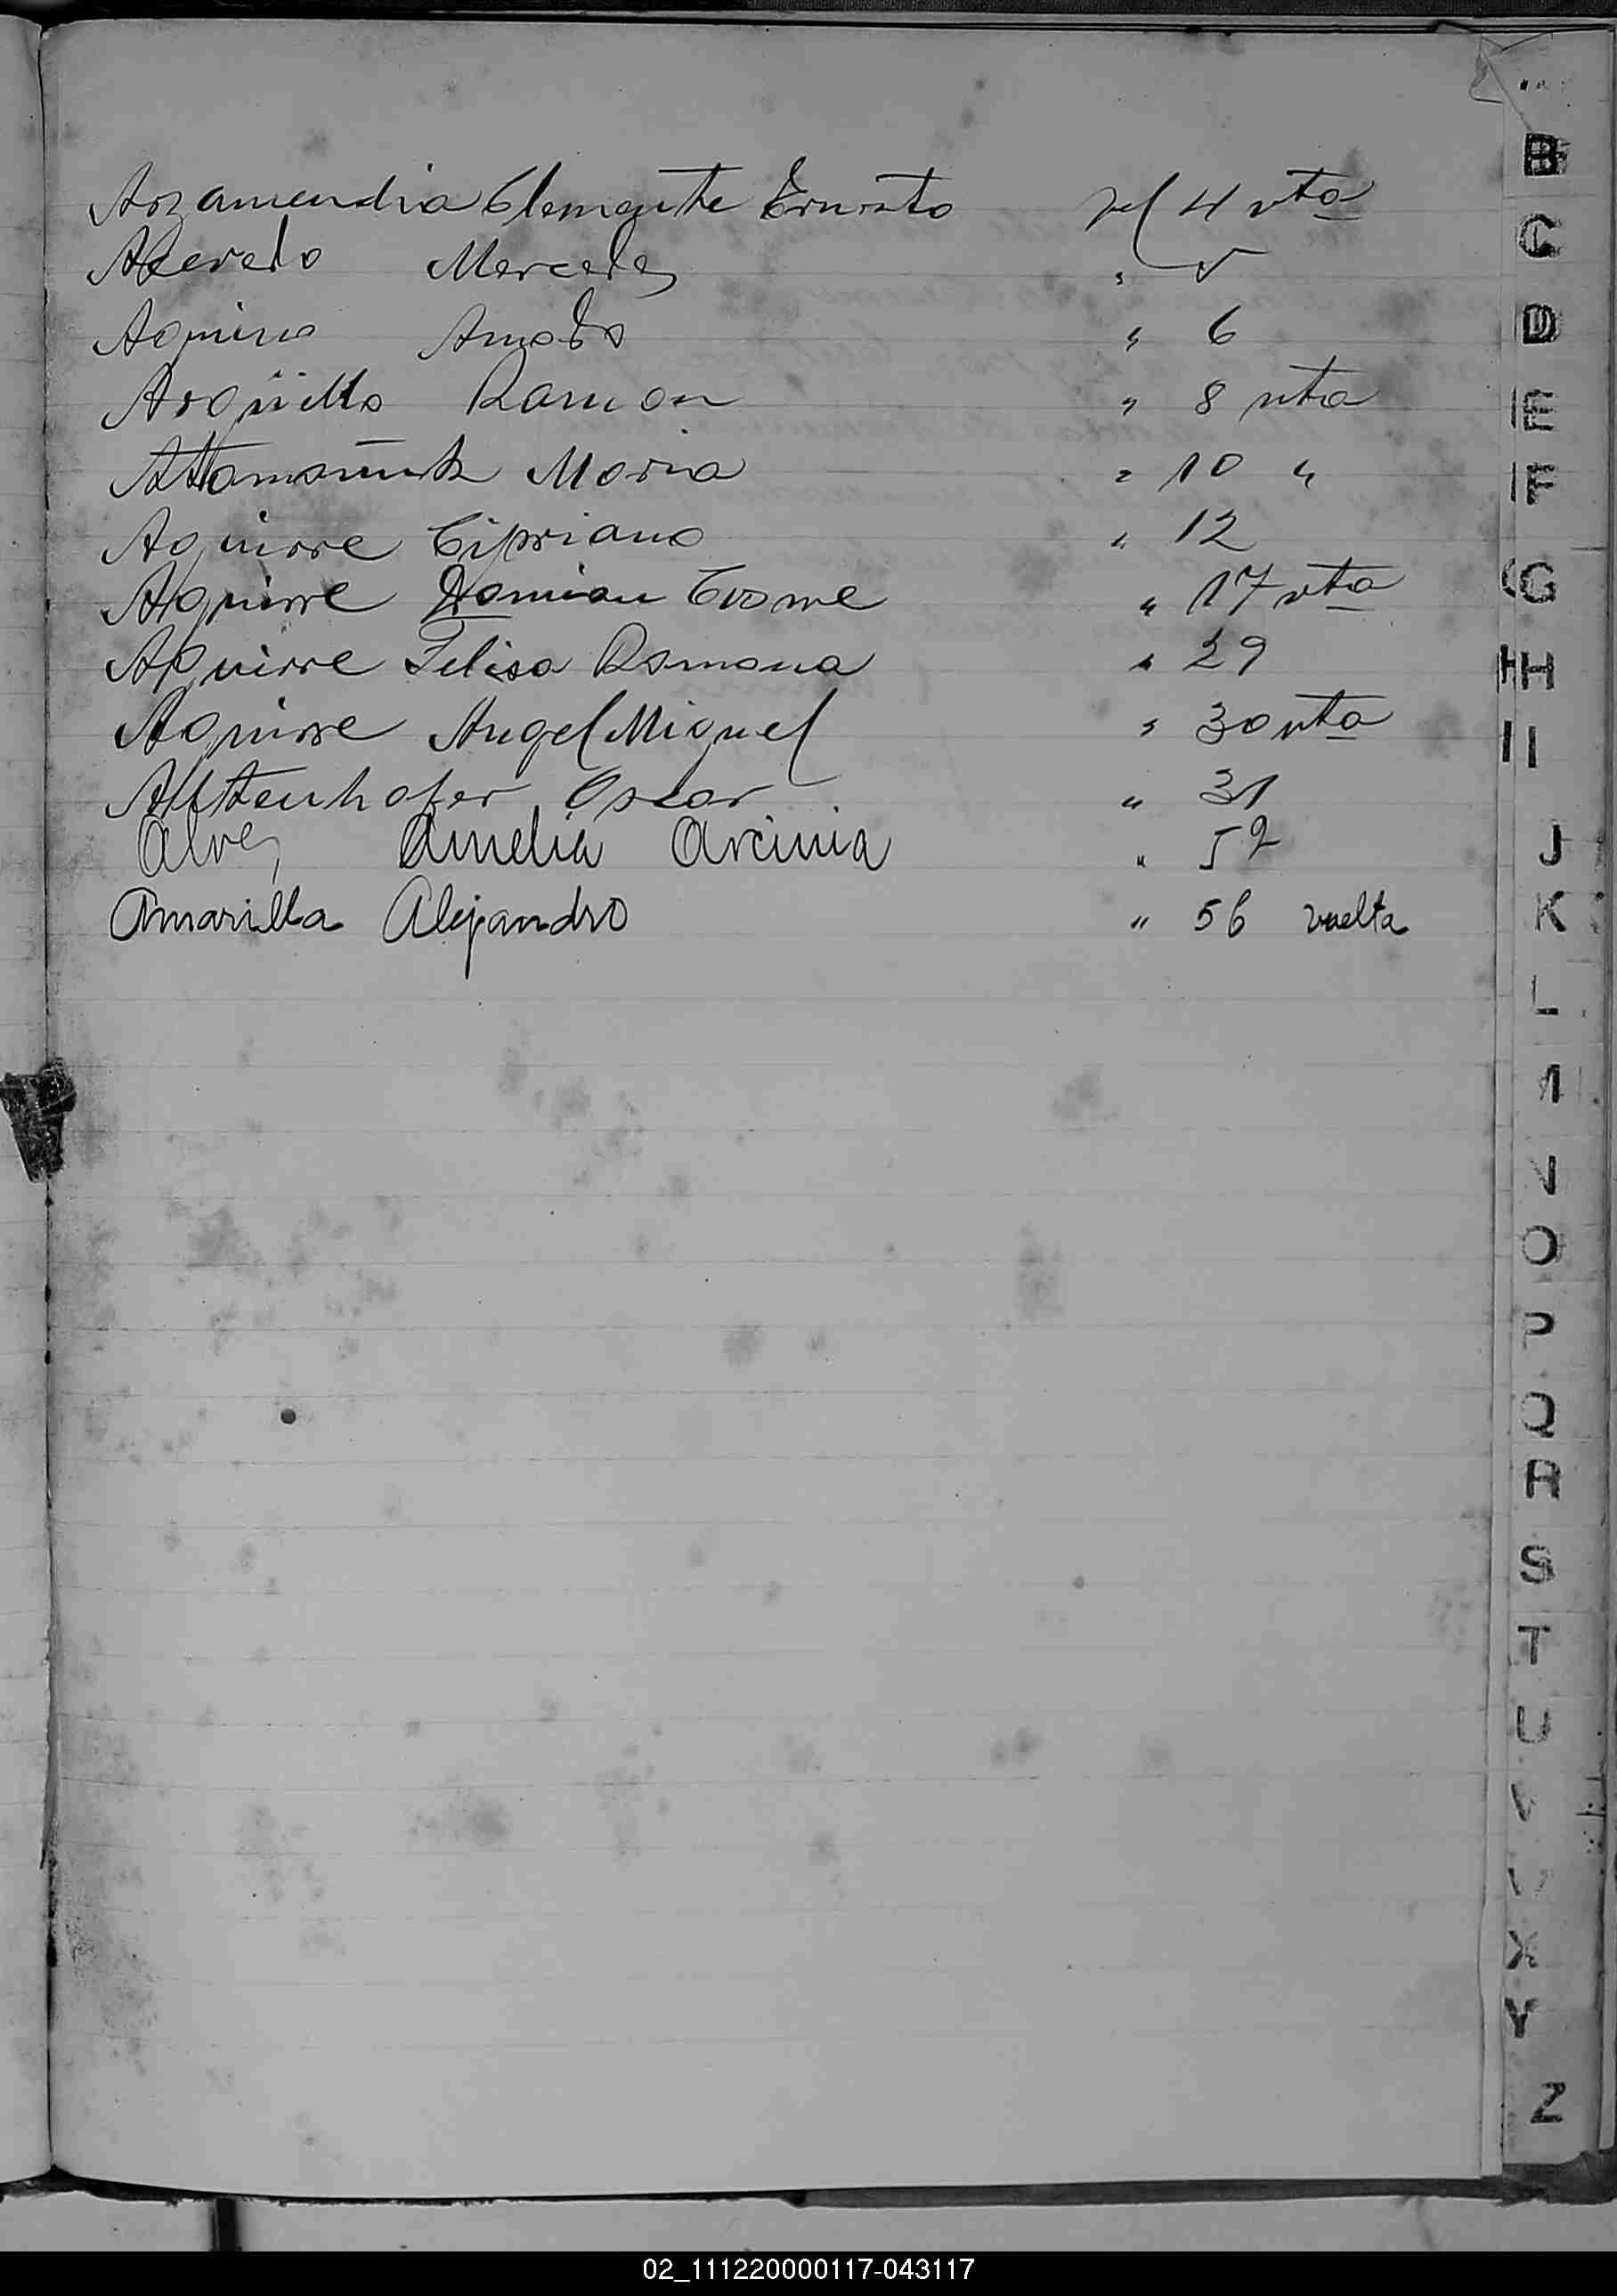 Arzamendia Clemente Ernesto fol 4 vta
Acevedo Mercedes " 5
Aquino Amado " 6
Argüello Ramon " 8 vta
Maria " 10 "
Aguirre Cipriano " 12
Aguirre Damian " 17 vta
Aguirre Felisa Ramona " 29
Aguirre Angel Miguel " 30 vta
Alttenhofer Oscar " 31
Alvez Amelia Arcinia " 52
Amarilla Alejandro " 56 vuelta
B
C
D
E
F
G
H
I
J
K
L
N
O
P
Q
R
S
T
U
V
X
Y
Z
02_111220000117-043117